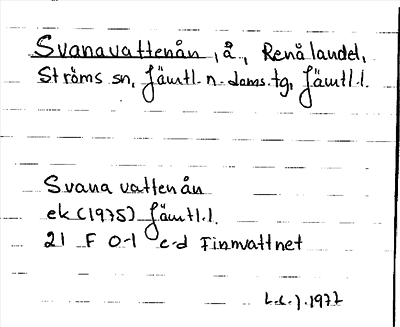 Svanavattenån, å., Renålandet,
Ströms sn, Jämtl. n. doms. tg, Jämtl. l.
Svanavattenån
ek (1975) Jämtl. l.
21 F 0-1 c-d Finnvattnet
1977